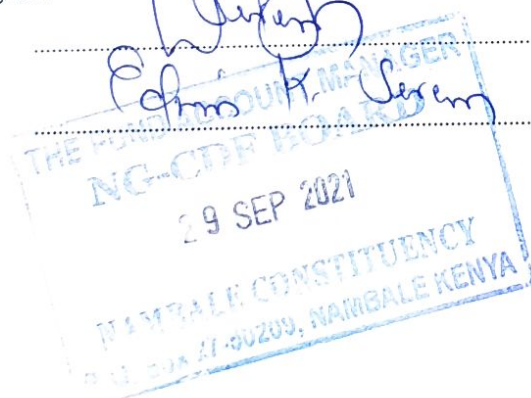 Edwin K. Serem
THE FUND ACCOUNT MANAGER
NG-CDF BOARD
29 SEP 2021
NAMBALE CONSTITUENCY
NAMBALE KENYA